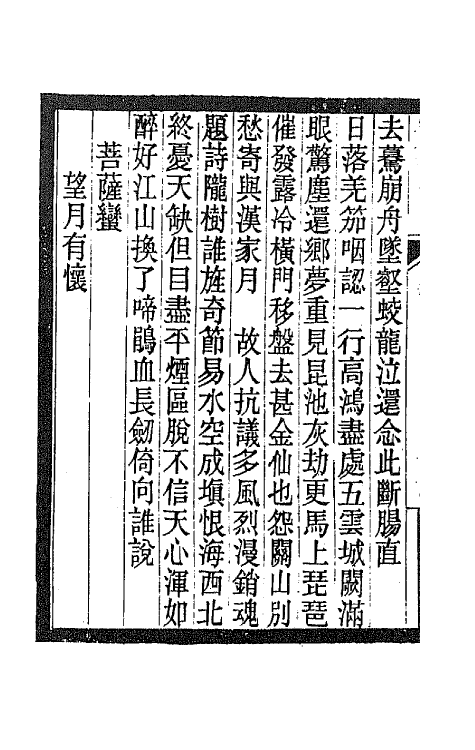 去驀崩舟墜壑蛟龍泣還念此斷腸直
日落羌笳咽認一行高鴻盡處五雲城闕滿
眼驚塵還鄉夢重見昆池灰劫更馬上琵琶
催發露冷橫門移盤去甚金仙也怨關山別
愁寄與漢家月　故人抗議多風烈漫銷魂
題詩隴樹誰旌奇節易水空成塡恨海西北
終憂天缺但目盡平煙區脫不信天心渾如
醉好江山換了啼鵑血長劒倚向誰說
菩薩蠻
望月有懷